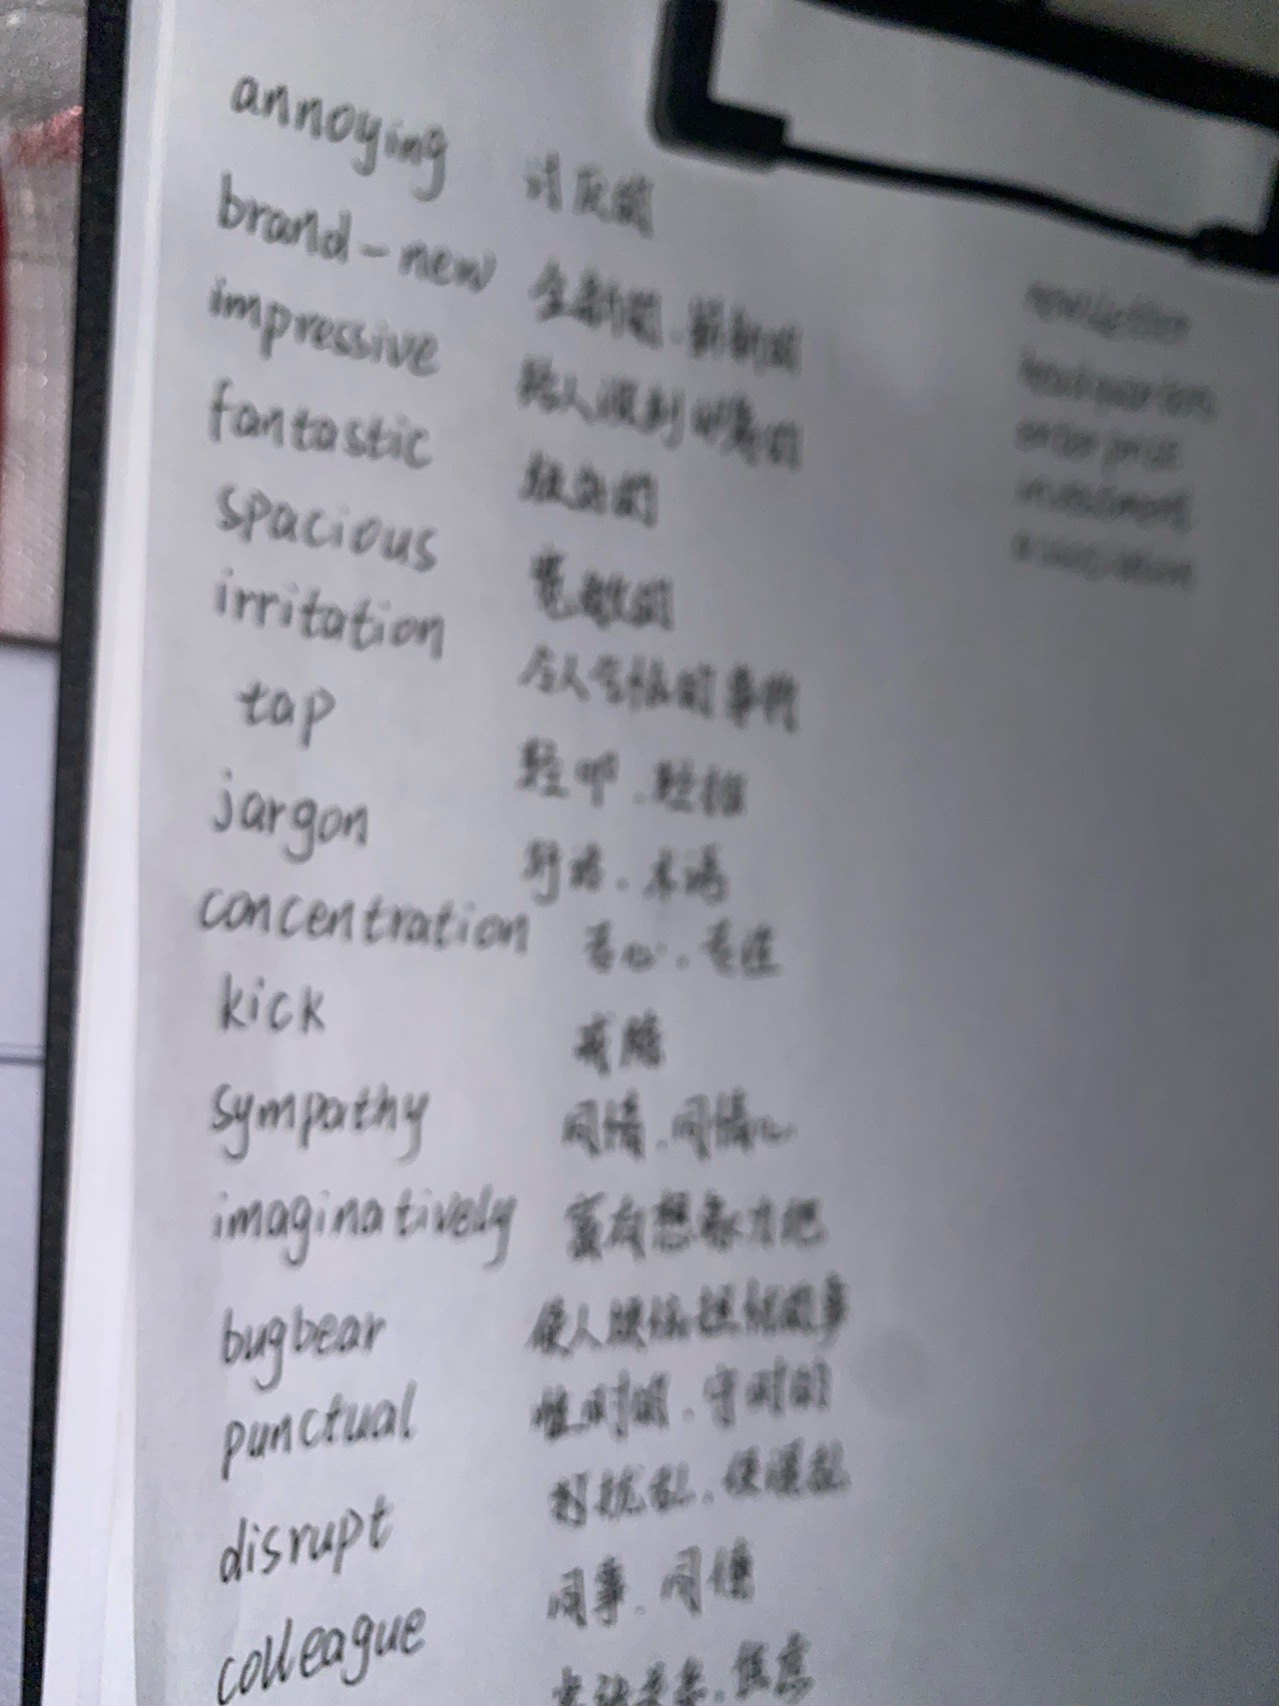 annoying 讨厌的
brand-new 全新的、崭新的
impressive 给人深刻印象的
fantastic 极好的
spacious 宽敞的
irritation 令人气恼的事物
tap 轻叩、轻拍
jargon 行话、术语
concentration 专心、专注
kick 戒除
sympathy 同情、同情心
imaginatively 富有想象力地
bugbear 使人烦恼担忧的事
punctual 准时的、守时的
disrupt 打扰乱、使混乱
colleague 同事、同僚
headquarters
enterprise
investment